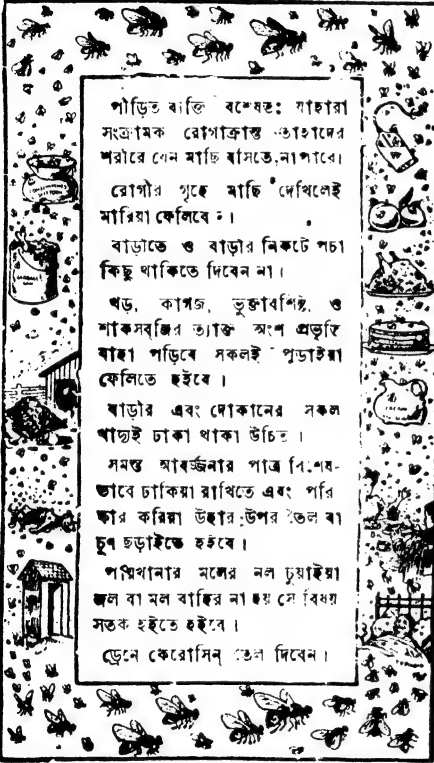 পীড়িত ব্যক্তি বিশেষতঃ যাহারা
সংক্রামক রোগাক্রান্ত তাহাদের
শরীরে যেন মাছি বসিতে না পারে।
রোগীর গৃহে মাছি দেখিলেই
মারিয়া ফেলিবে ন।
বাড়ীতে ও বাড়ীর নিকটে পচা
কিছু থাকিতে দিবেন না।
খড়, কাগজ, ভুক্তাবশিষ্ট, ও
শাকসব্জির ত্যাক্ত অংশ প্রভৃতি
যাহা পড়িবে সকলই পুড়াইয়া
ফেলিতে হইবে।
বাড়ীর এবং দোকানের সকল
খাদ্যই ঢাকা থাকা উচিত।
সমস্ত আবর্জ্জনার পাত্র বিশেষ-
ভাবে ঢাকিয়া রাখিতে এবং পরি
ষ্কার করিয়া উহার উপর তৈল বা
চুণ ছড়াইতে হইবে।
মলের নল চুয়াইয়া
জল বা মল বাহির না হয় সে বিষয়
সতর্ক হইতে হইবে।
ড্রেনে কেরোসিন্ তেল দিবেন।